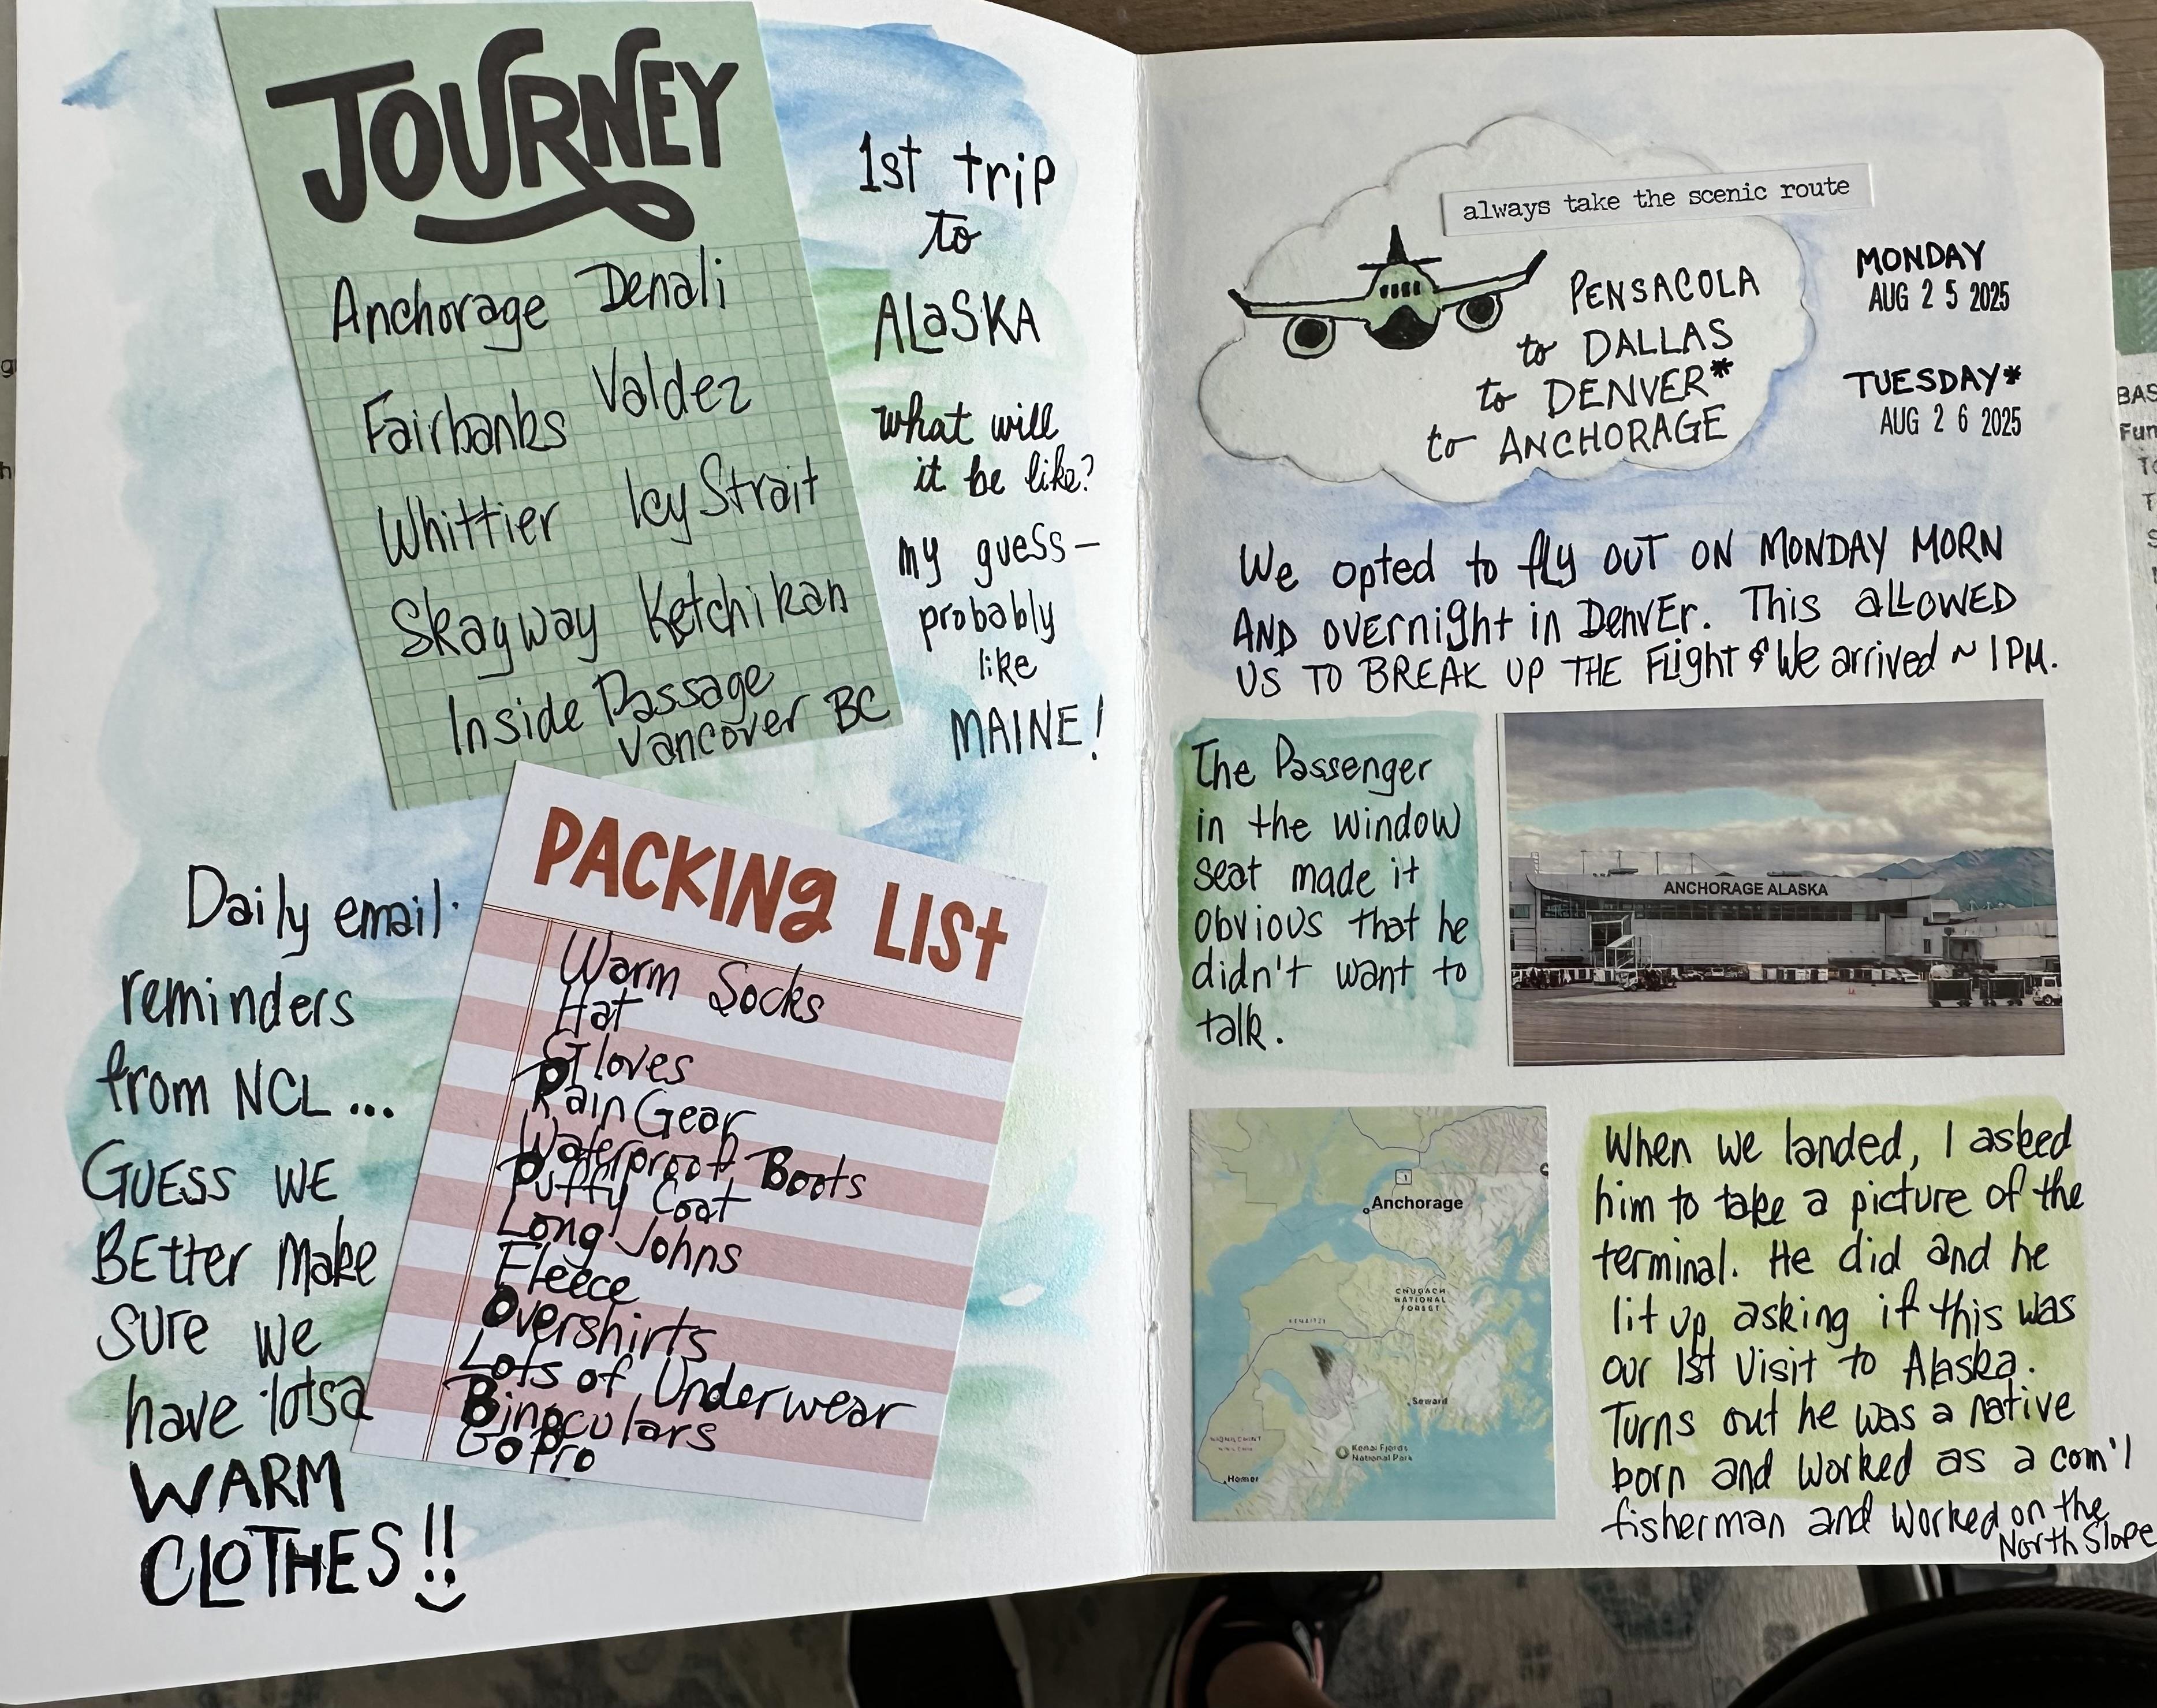 JOURNEY
Anchorage Denali
Fairbanks Valdez
Whittier Icy Strait
Skagway Ketchikan
Inside Passage
Vancover BC
1st trip
to
ALaSKA
what will
it be like?
my guess—
probably
like
MAINE!
Daily email
reminders
from NCL...
GUESS WE
BEtter Make
sure we
have lotsa
WARM
CLOTHES!!
PACKING LISt
Warm Socks
Hat
Gloves
Rain Gear
Waterproof Boots
Puffy Coat
Long Johns
Fleece
Overshirts
Lots of Underwear
Binoculars
GoPro
always take the scenic route
PENSACOLA
to DALLAS
to DENVER*
to ANCHORAGE
MONDAY
AUG 25 2025
TUESDAY*
AUG 26 2025
We opted to fly OUT ON MONDAY MORN
AND overnight in DenvEr. This aLLOWED
US TO BREAK UP THE Flight & We arrived ~ 1 PM.
The Passenger
in the window
seat made it
obvious that he
didn't want to
talk.
ANCHORAGE ALASKA
1
Anchorage
CHUGACH
NATIONAL
FOREST
KENAITZE
Seward
Kenai Fjords
National Park
Homer
When we landed, I asked
him to take a picture of the
terminal. He did and he
lit up, asking if this was
our 1st visit to Alaska.
Turns out he was a native
born and worked as a com'l
fisherman and worked on the
North Slope
BAS
Fun